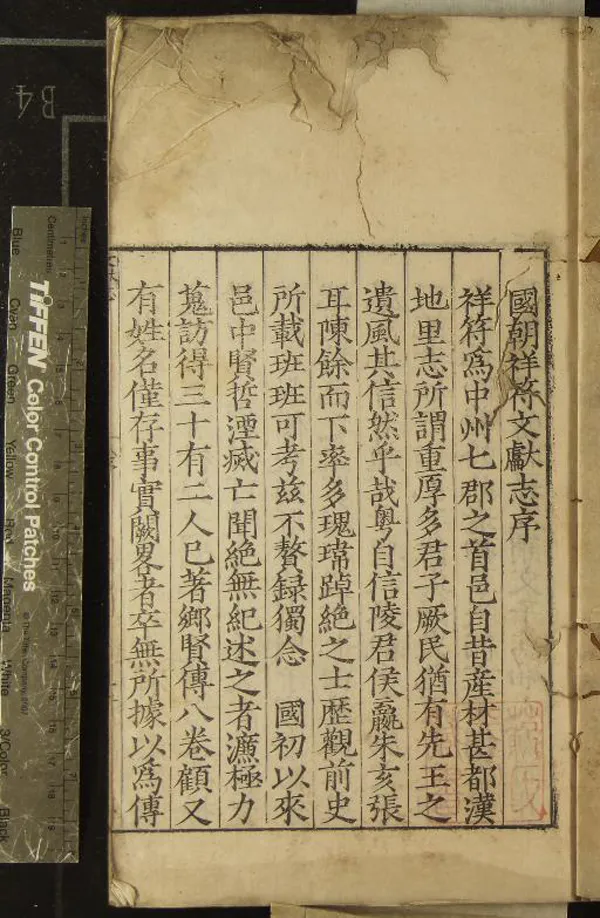 國朝祥符文獻志序
祥符爲中州七郡之首邑自昔産材甚都漢
地里志所謂重厚多君子厥民猶有先王之
遺風其信然乎哉粤自信陵君侯嬴朱亥張
耳陳餘而下率多瑰瑋踔絶之士歴觀前史
所載班班可考兹不贅録獨念 國初以來
邑中賢哲湮㓕亡聞絶無紀述之者濂極力
蒐訪得三十有二人已著鄉賢傳八卷顧又
有姓名僅存事實闕畧者卒無所據以爲傳
B4
Inches
Centimetres
TIFFEN Color Control Patches
© The Tiffen Company, 2007
Blue
Cyan
Green
Yellow
Red
Magenta
White
3/Color
Black